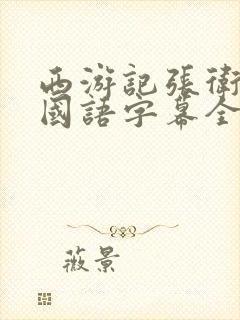 西游記張衛
國語字幕全
薇景